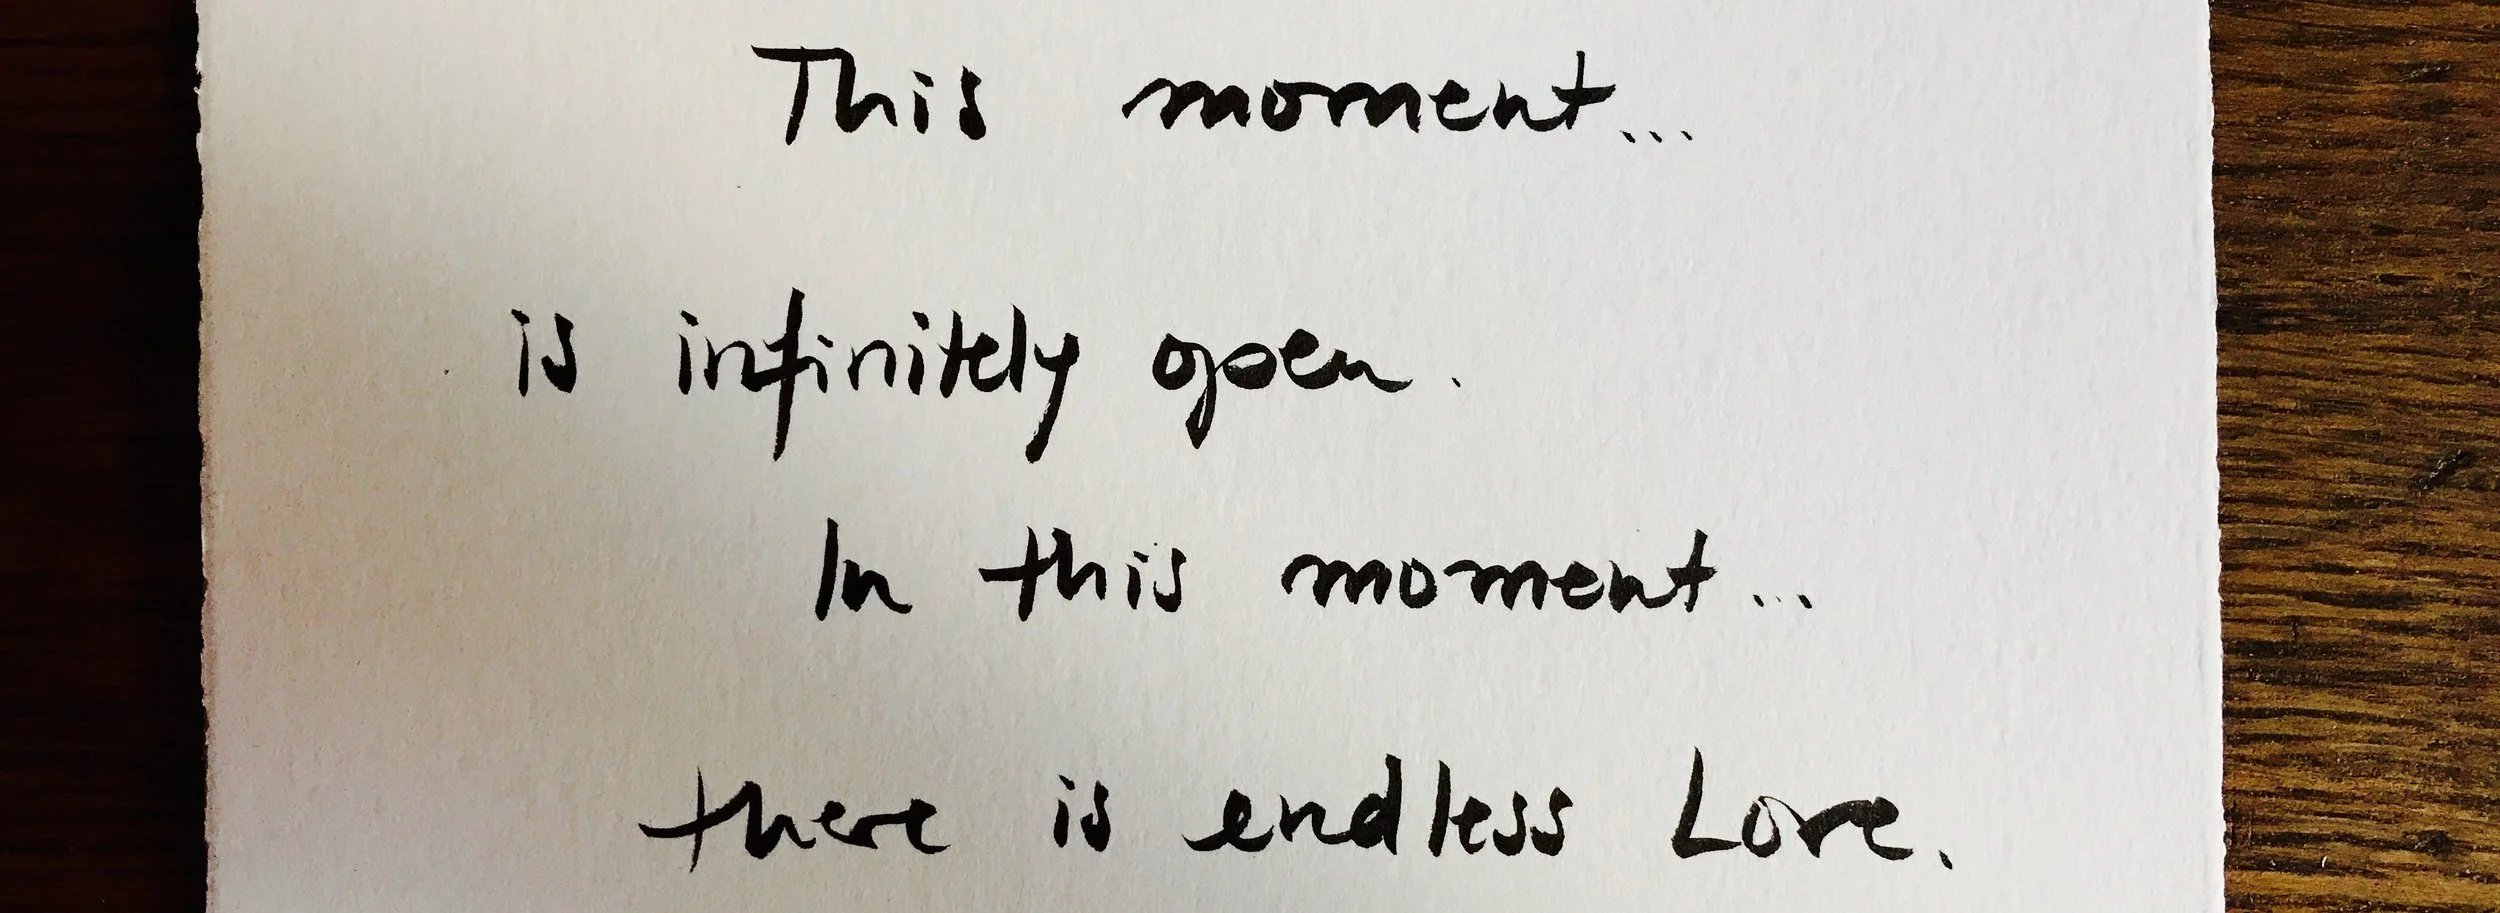 This moment...
is infinitely open.
In this moment...
there is endless Love.